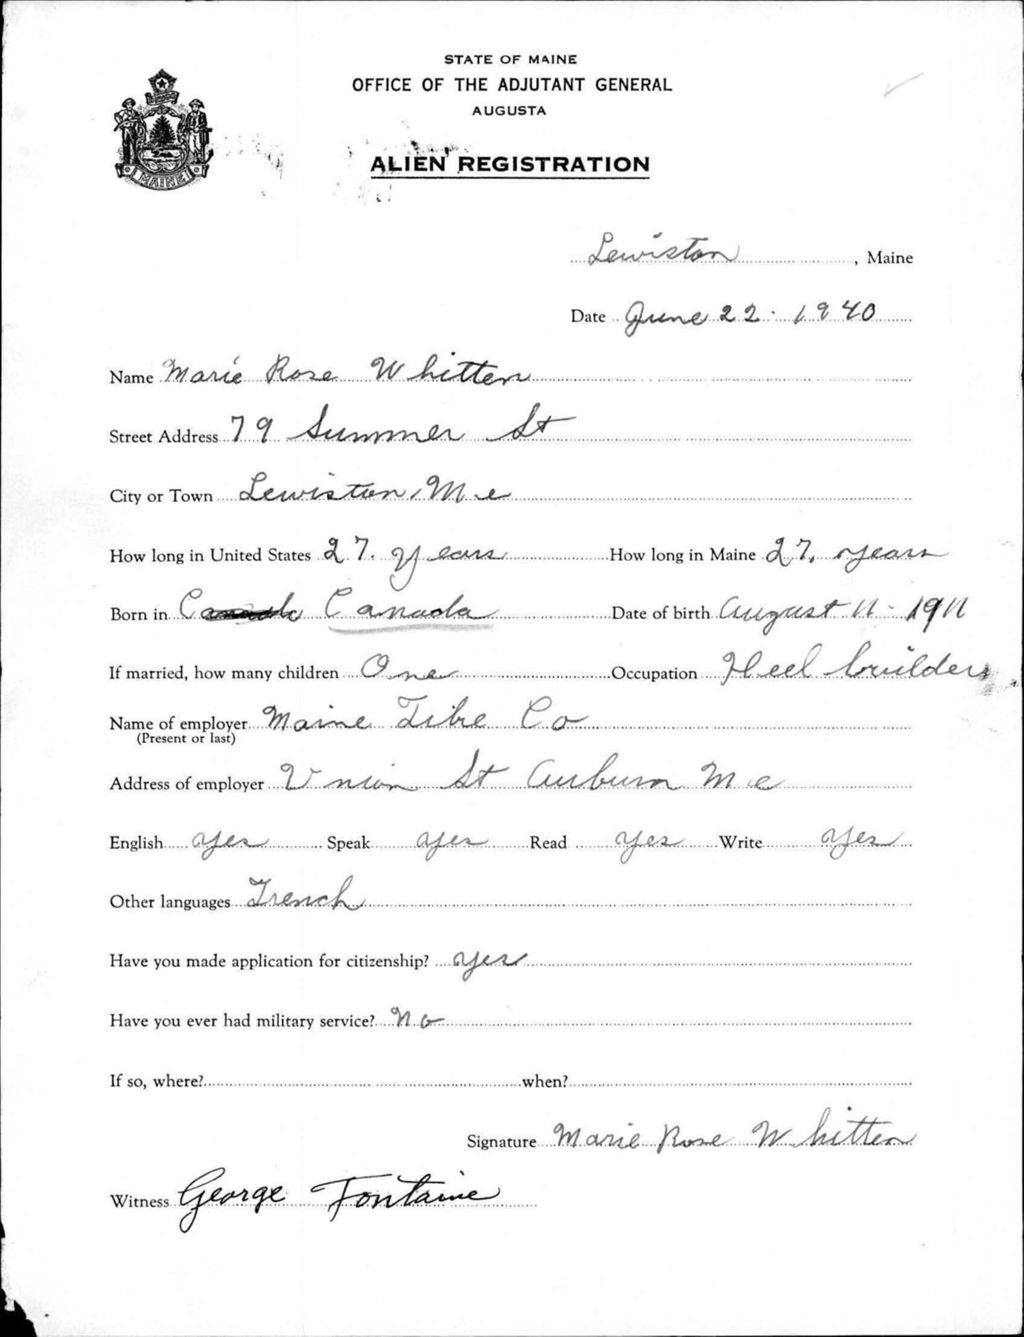 STATE OF MAINE
OFFICE OF THE ADJUTANT GENERAL
AUGUSTA
ALIEN REGISTRATION
MAINE
Lewiston, Maine
Date June 22. 1940
Name Marie Rose Whitten
Street Address 79 Summer St
City or Town Lewiston, Me
How long in United States 27. years How long in Maine 27, years
Born in Canada Date of birth August 11 - 1911
If married, how many children One Occupation Heel builder
Name of employer Maine Fibre Co
(Present or last)
Address of employer Union St Auburn Me
English yes Speak yes Read yes Write yes
Other languages French
Have you made application for citizenship? yes
Have you ever had military service? No
If so, where? when?
Signature Marie Rose Whitten
Witness George Fontaine